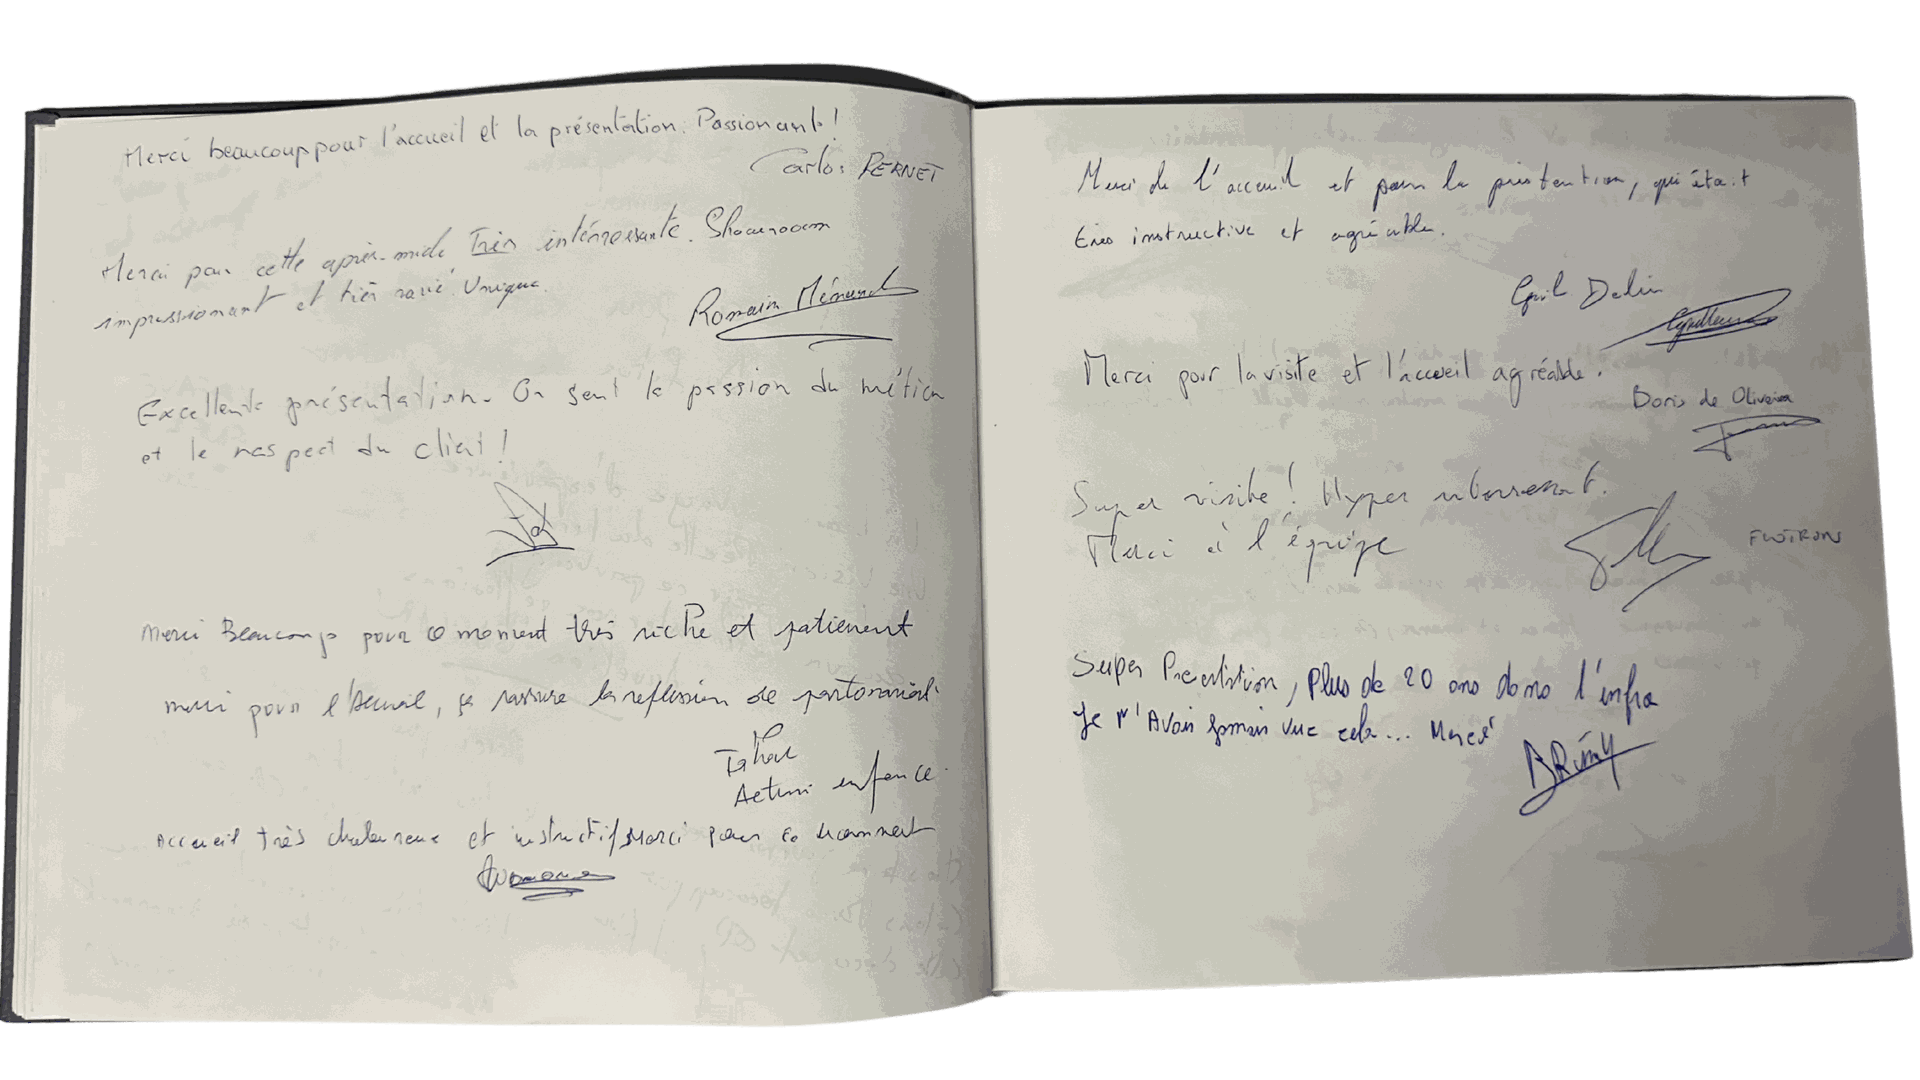 Merci beaucoup pour l'accueil et la présentation. Passionant !
Carlos PERNET
Merci pour cette après-midi Très intéressante. Showroom
impressionnant et très varié. Unique.
Romain Ménard
Excellente présentation. On sent la passion du métier
et le respect du client !
Merci Beaucoup pour ce moment très riche et
merci pour l'Accueil, ça rassure la reflexion de partenariat.
enfance
Accueil très chaleureux et instructif, Merci pour ce moment
Merci de l'acceuil et pour la présentation, qui était
très instructive et agréable.
Merci pour la visite et l'accueil agréable.
Doris de Oliveira
Super visite ! Hyper interressant.
Merci à l'équipe
Super Presentation, Plus de 20 ans dans l'infra
Je n'Avais jamais vue cela... Merci